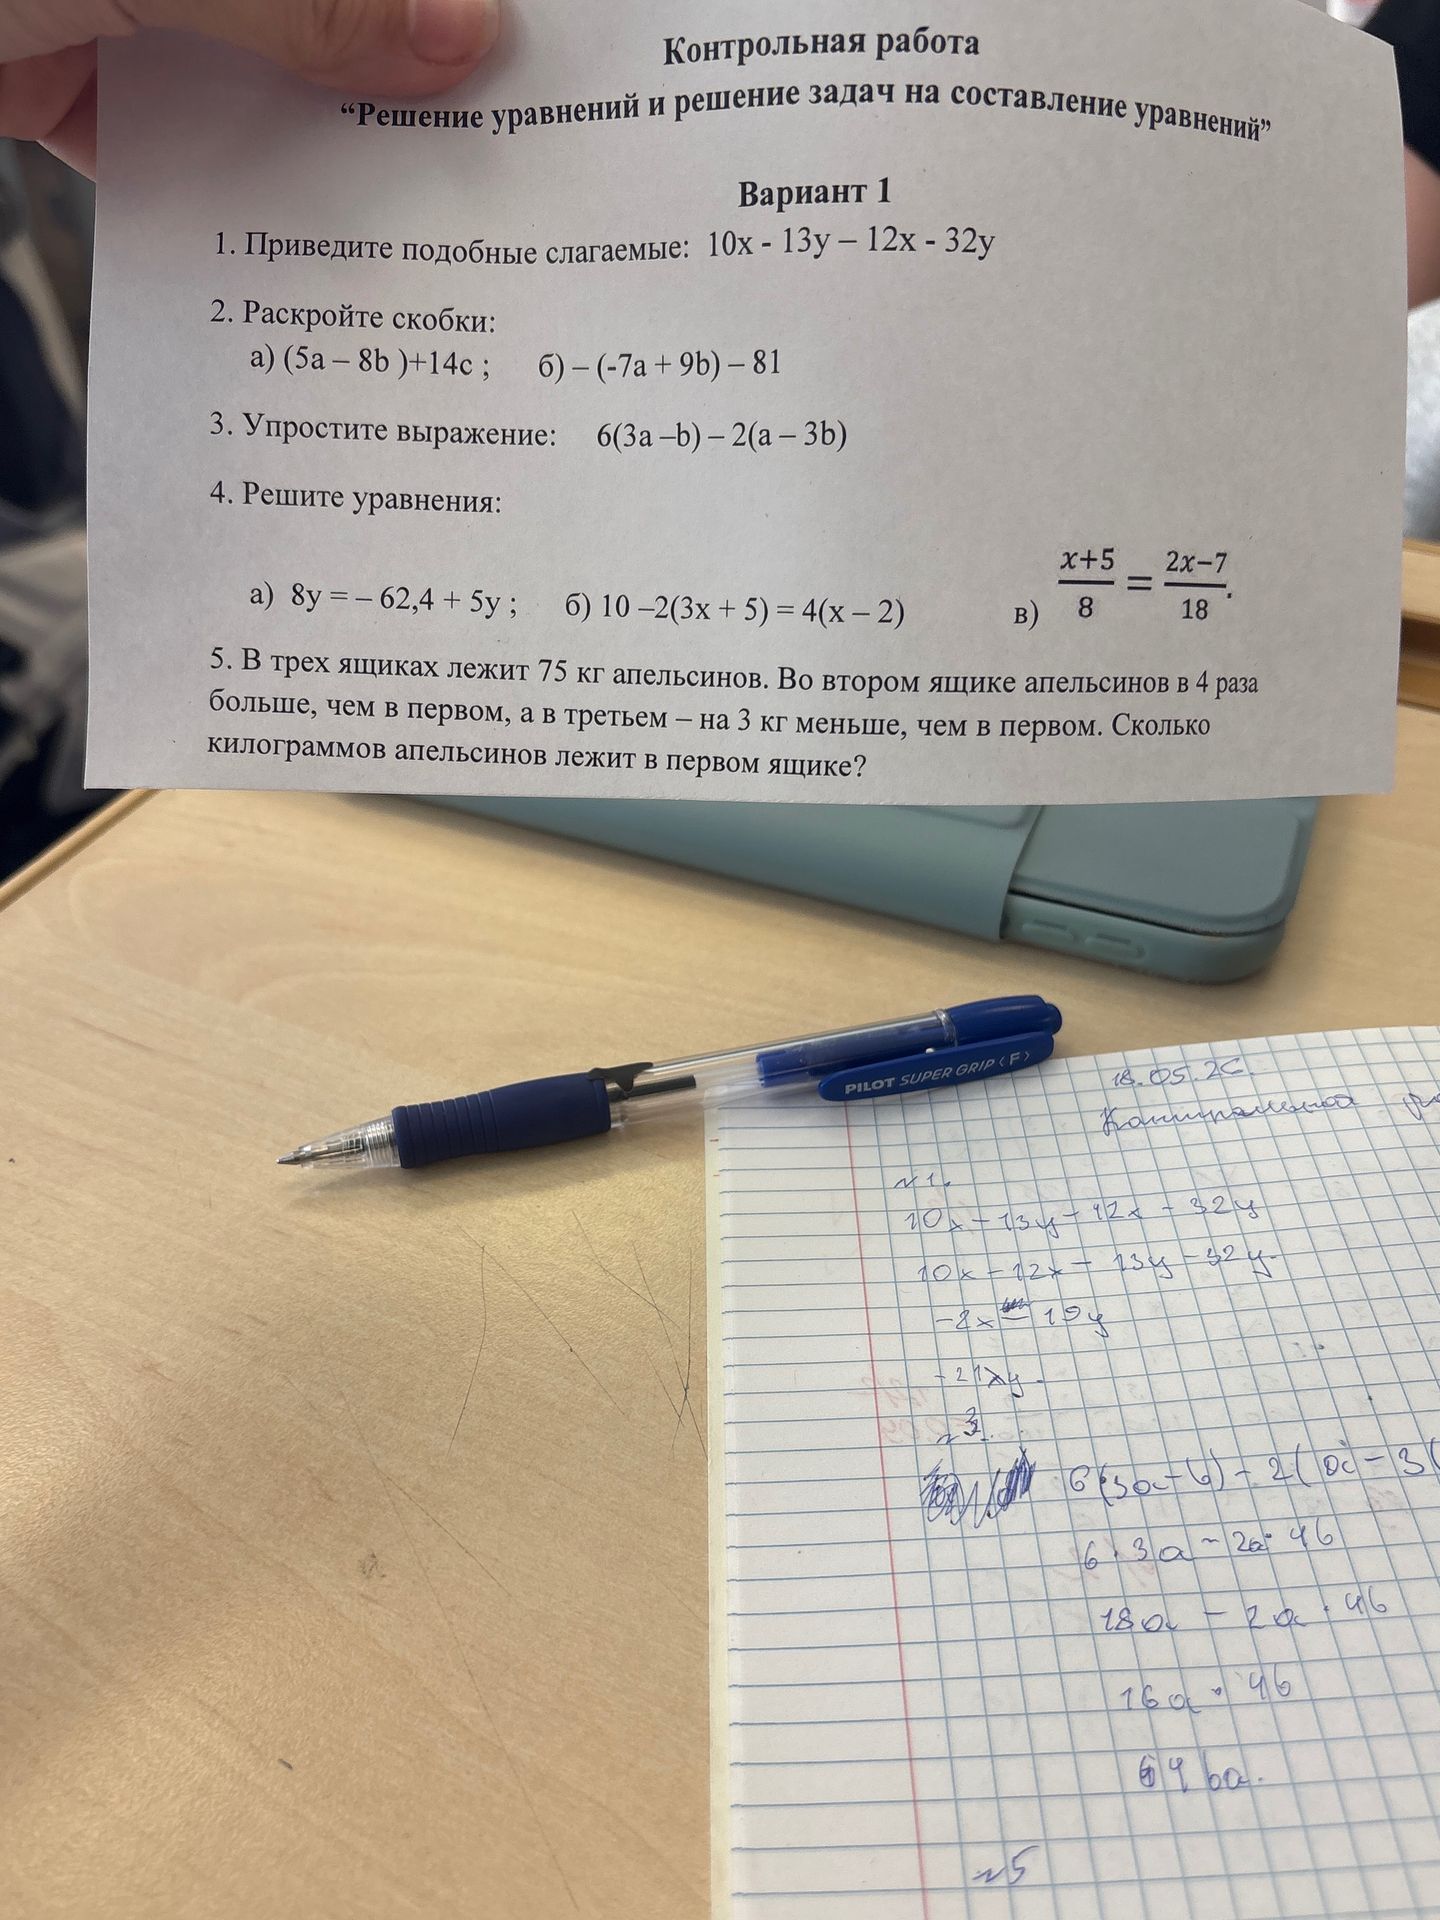 Контрольная работа
“Решение уравнений и решение задач на составление уравнений”
Вариант 1
1. Приведите подобные слагаемые: 10x - 13y – 12x - 32y
2. Раскройте скобки:
а) (5a – 8b )+14c ; б) – (-7a + 9b) – 81
3. Упростите выражение: 6(3a –b) – 2(a – 3b)
4. Решите уравнения:
а) 8y = – 62,4 + 5y ; б) 10 –2(3x + 5) = 4(x – 2) в) x+5/8 = 2x−7/18.
5. В трех ящиках лежит 75 кг апельсинов. Во втором ящике апельсинов в 4 раза
больше, чем в первом, а в третьем – на 3 кг меньше, чем в первом. Сколько
килограммов апельсинов лежит в первом ящике?
PILOT SUPER GRIP ‹ F ›
18.05.26.
Контрольная
№1.
10x - 13y - 12x - 32y
10x - 12x - 13y - 32y
-2x - 19y
-21xy.
№3.
6(3a-b) - 2(a - 3
6·3a - 2a· 4b
18a - 2a · 4b
16a · 4b
64ba.
№5